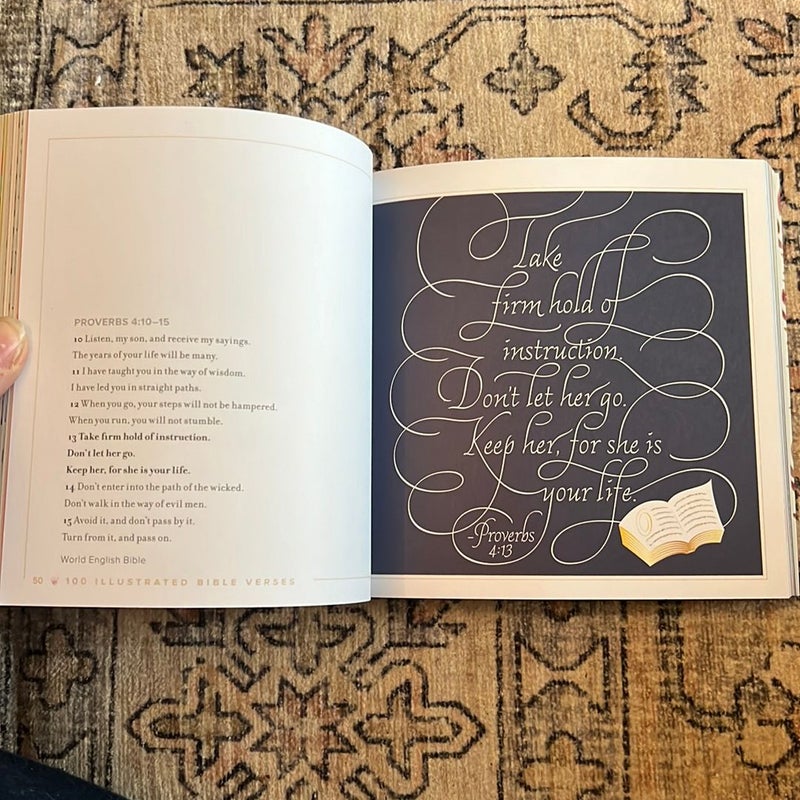 PROVERBS 4:10–15
10 Listen, my son, and receive my sayings.
The years of your life will be many.
11 I have taught you in the way of wisdom.
I have led you in straight paths.
12 When you go, your steps will not be hampered.
When you run, you will not stumble.
13 Take firm hold of instruction.
Don't let her go.
Keep her, for she is your life.
14 Don't enter into the path of the wicked.
Don't walk in the way of evil men.
15 Avoid it, and don't pass by it.
Turn from it, and pass on.
World English Bible
50 100 ILLUSTRATED BIBLE VERSES
Take
firm hold of
instruction.
Don't let her go.
Keep her, for she is
your life.
-Proverbs
4:13